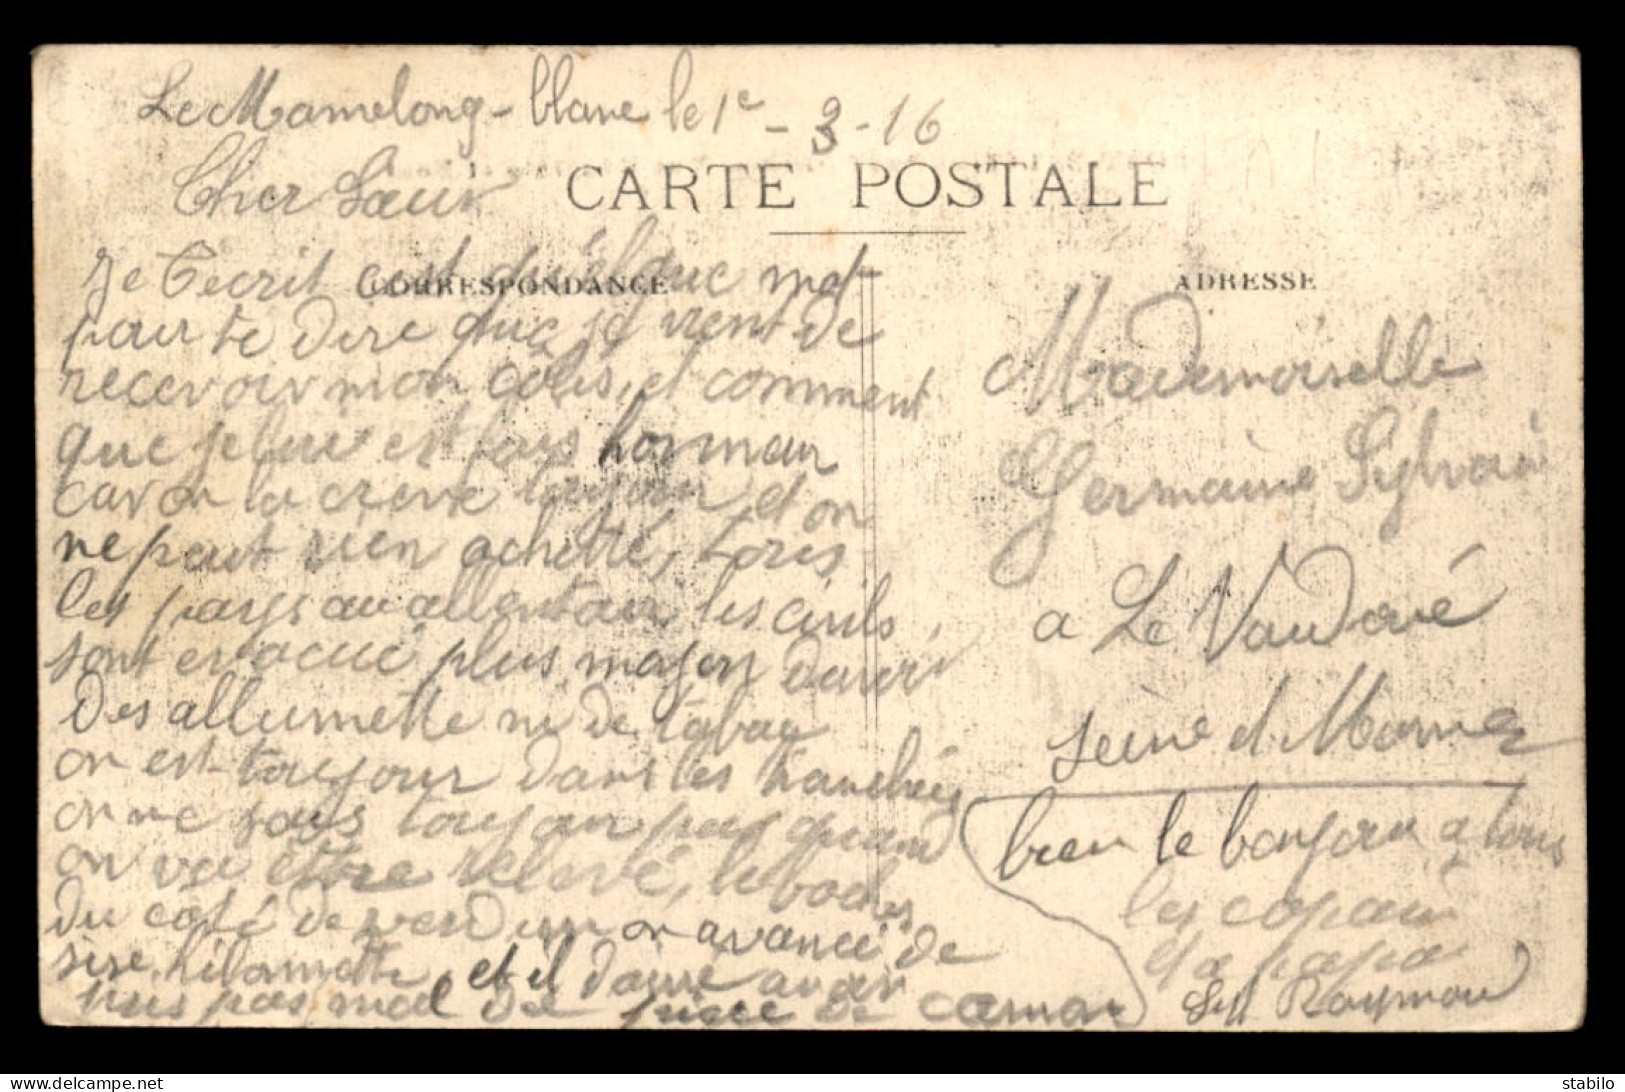 Le Mamelong-blanc le 1e - 3 - 16
CARTE POSTALE
Cher Sœur
CORRESPONDANCE
Je t'écrit cest quélque mot
pour te dire que je vient de
recevoir mon colis, et comment
que je lui est fais honneur
car on la creve toujour et on
ne peut rien acheté, tous
les pays au allentour les civils
sont evacué plus moyen davoir
des allumette ni de tabac
on est toujour dans les tranchées
on ne sais toujour pas quand
on va être relevé, les boches
du coté de verdun on avancé de
sise kilomettre et il doive avoir
pris pas mal de piece de canon
ADRESSE
Mademoiselle
Germaine Sylvain
a Le Vaudoué
Seine et Marne
bien le bonjour a tous
les copain
et a papa
Raymon
stabilo